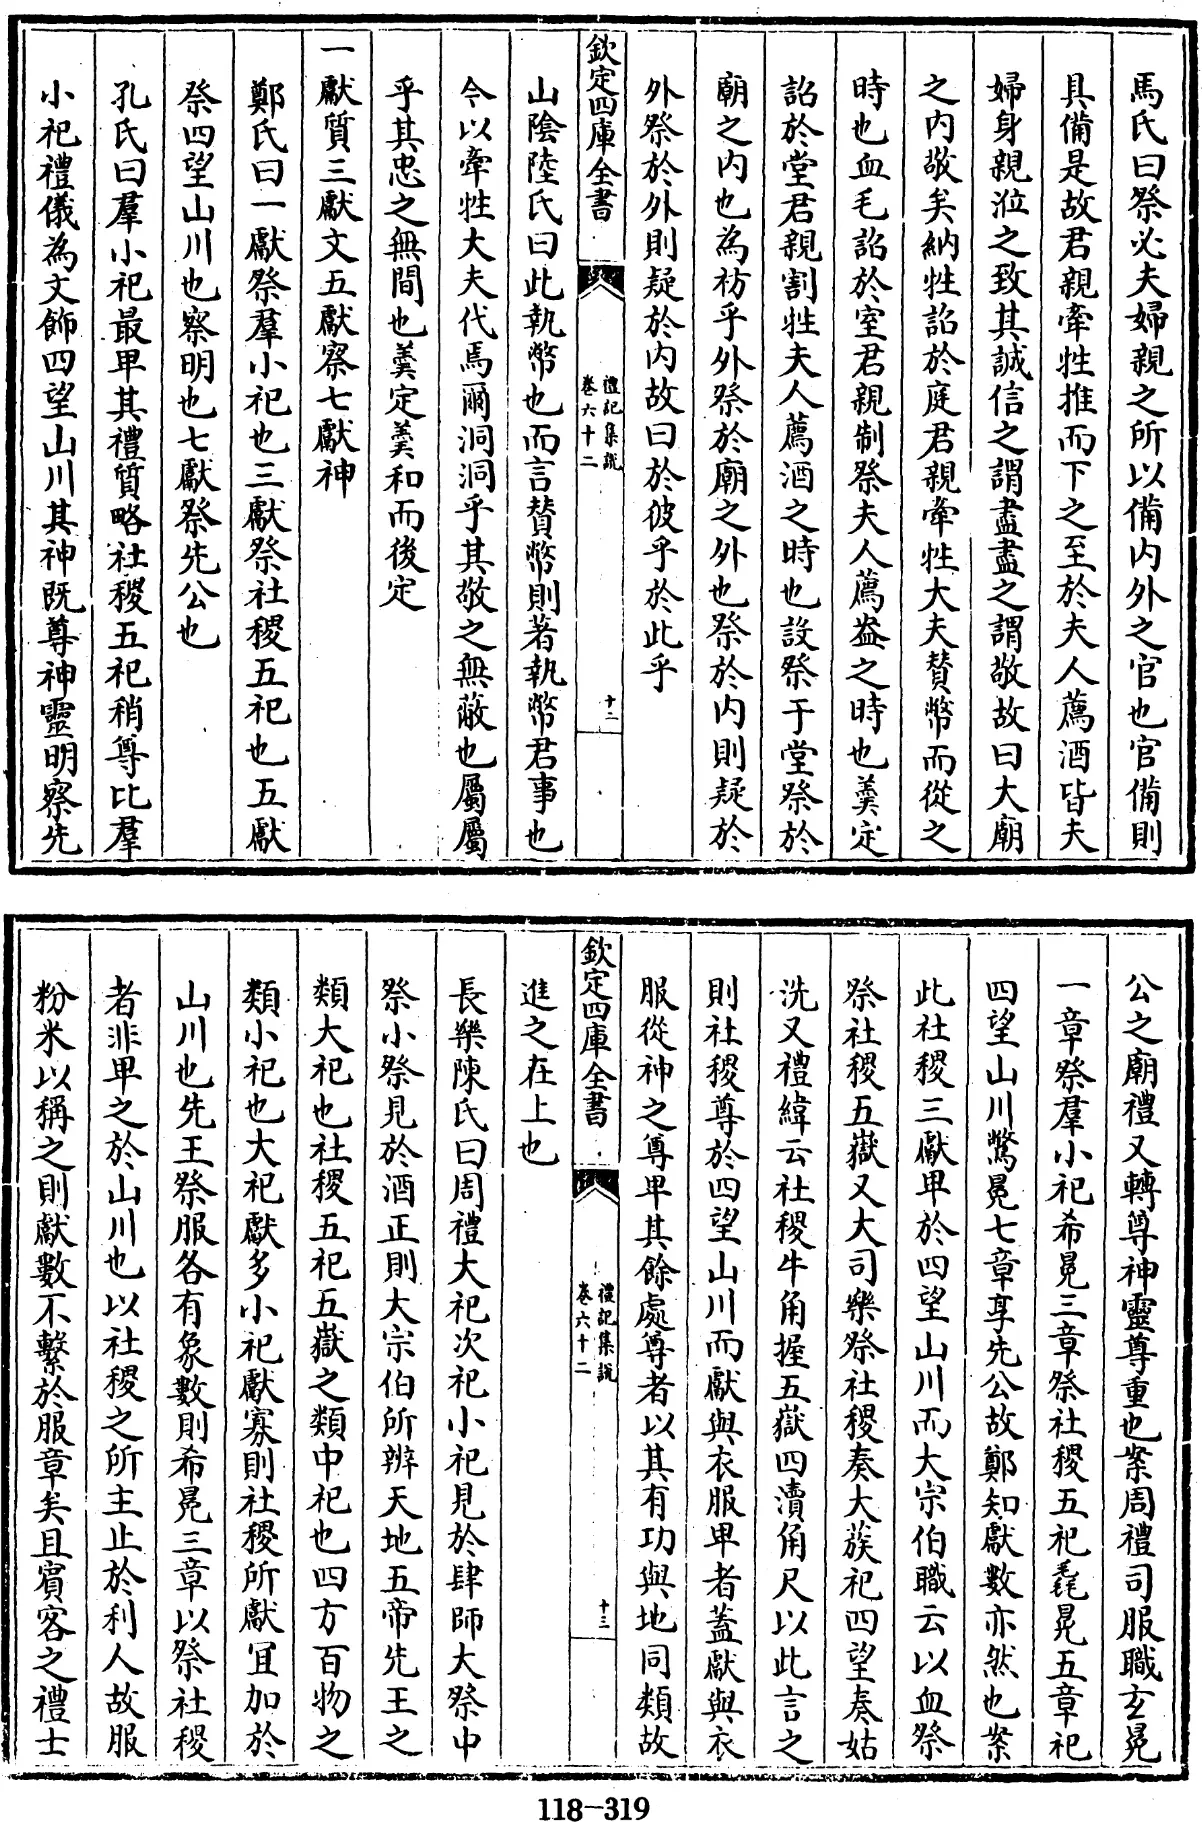 馬氏曰祭必夫婦親之所以備内外之官也官備則
具備是故君親牽牲推而下之至於夫人薦酒皆夫
婦身親涖之致其誠信之謂盡盡之謂敬故曰大廟
之内敬矣納牲詔於庭君親牽牲大夫賛幣而從之
時也血毛詔於室君親制祭夫人薦盎之時也羹定
詔於堂君親割牲夫人薦酒之時也設祭于堂祭於
廟之内也為祊乎外祭於廟之外也祭於内則疑於
外祭於外則疑於内故曰於彼乎於此乎
欽定四庫全書
禮記集說
卷六十二
十二
山陰陸氏曰此執幣也而言賛幣則著執幣君事也
今以牽牲大夫代焉爾洞洞乎其敬之無蔽也屬屬
乎其忠之無間也羹定羹和而後定
一獻質三獻文五獻察七獻神
鄭氏曰一獻祭羣小祀也三獻祭社稷五祀也五獻
祭四望山川也察明也七獻祭先公也
孔氏曰羣小祀最卑其禮質略社稷五祀稍尊比羣
小祀禮儀為文飾四望山川其神既尊神靈明察先
公之廟禮又轉尊神靈尊重也案周禮司服職玄冕
一章祭羣小祀希冕三章祭社稷五祀毳冕五章祀
四望山川鷩冕七章享先公故鄭知獻數亦然也案
此社稷三獻卑於四望山川而大宗伯職云以血祭
祭社稷五嶽又大司樂祭社稷奏大蔟祀四望奏姑
洗又禮緯云社稷牛角握五嶽四瀆角尺以此言之
則社稷尊於四望山川而獻與衣服卑者蓋獻與衣
服從神之尊卑其餘處尊者以其有功與地同類故
欽定四庫全書
禮記集說
卷六十二
十三
進之在上也
長樂陳氏曰周禮大祀次祀小祀見於肆師大祭中
祭小祭見於酒正則大宗伯所辨天地五帝先王之
類大祀也社稷五祀五嶽之類中祀也四方百物之
類小祀也大祀獻多小祀獻寡則社稷所獻宜加於
山川也先王祭服各有象數則希冕三章以祭社稷
者非卑之於山川也以社稷之所主止於利人故服
粉米以稱之則獻數不繫於服章矣且賓客之禮士
118-319